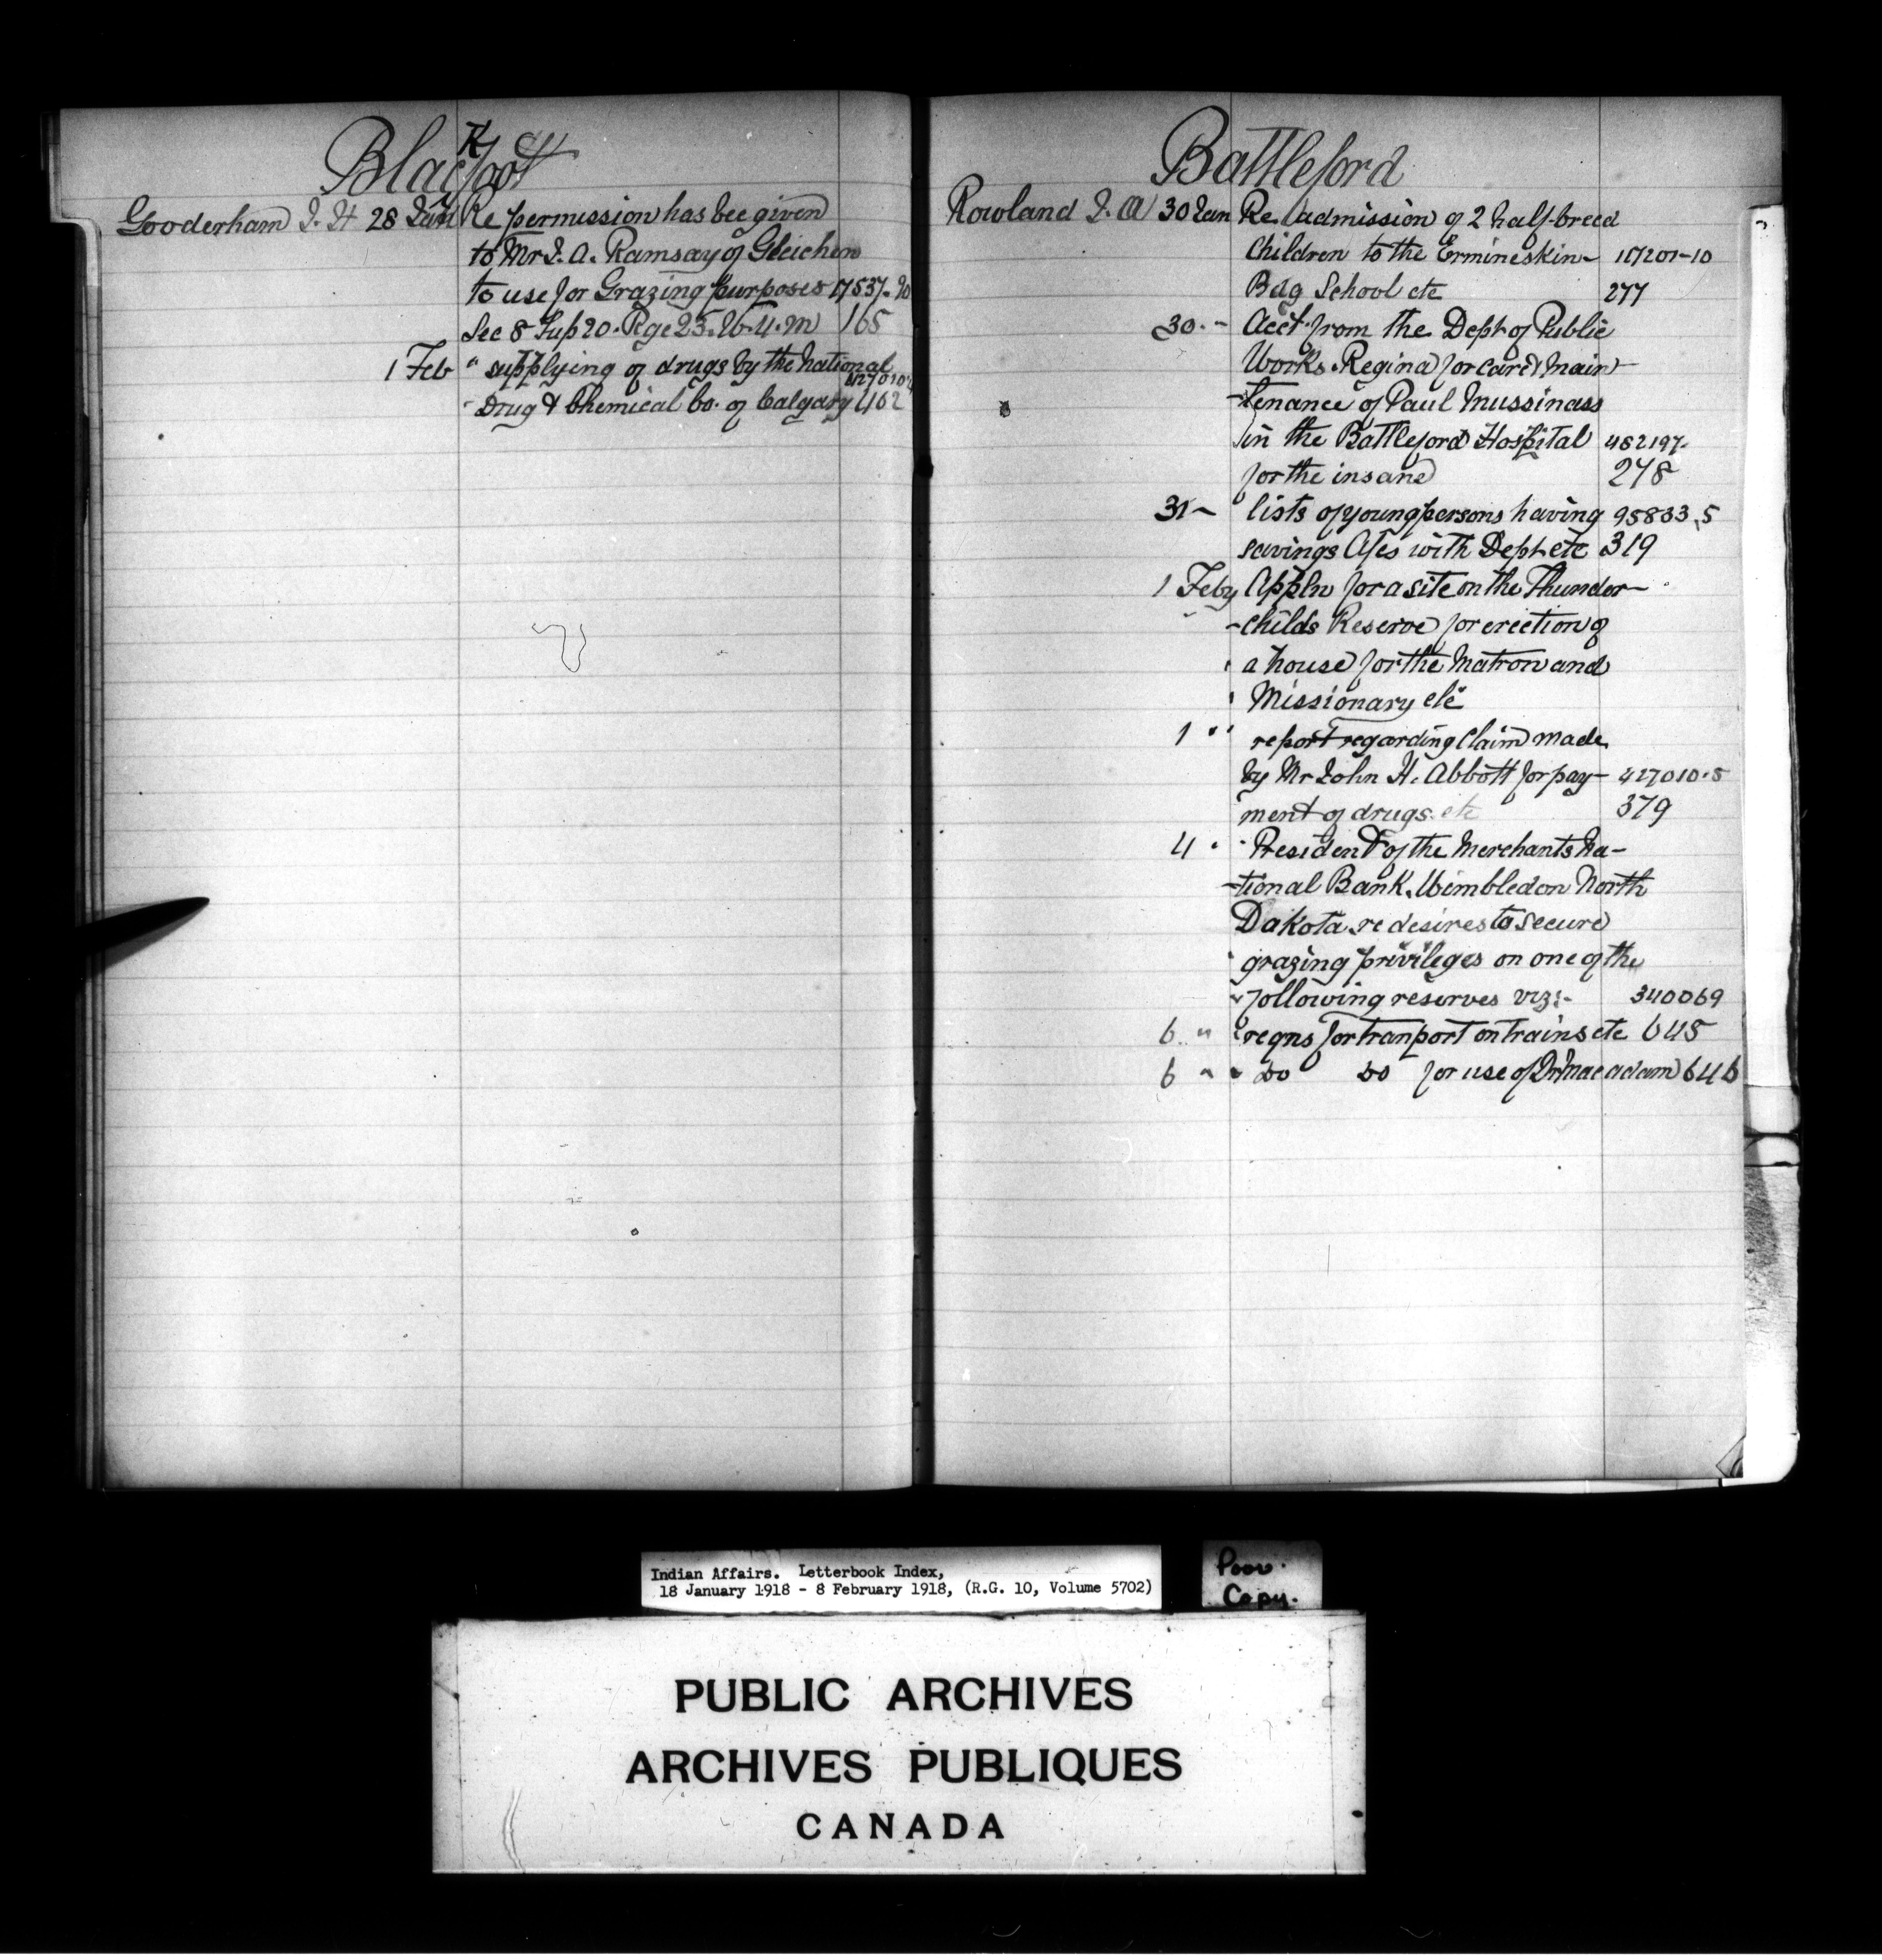 Blackfoot
Gooderham J. H 28 Jan Re permission has bee given
to Mr J. A. Ramsay of Gleichen
to use for Grazing purposes 17537-90
Sec 8 Tup 20. Rge 23. W. 4. M 165
1 Feb " supplying of drugs by the National
Drug & Chemical Co. of Calgary 402
Battleford
Rowland J. A 30 Jan Re admission of 2 half-breed
Children to the Ermineskin- 117201-10
Bdg School etc 277
30 - Acct from the Dept of Public
Works. Regina for care & main-
-tenance of Paul Mussinass
in the Battleford Hospital 482197-
for the insane 278
31 - lists of young persons having 95833,5
savings A/cs with Dept etc 319
1 Feby Appln for a site on the Thunder-
-childs Reserve for erection of
a house for the Matron and
Missionary etc
1 " report regarding claim made
by Mr John H. Abbott for pay- 427010-5
ment of drugs. etc 379
4 " President of the Merchants Na-
-tional Bank. Wimbledon North
Dakota re desires to secure
grazing privileges on one of the
following reserves viz:- 340069
6 " reqns for tranport on trains etc 645
6 " " do do for use of Dr Macadam 646
Indian Affairs. Letterbook Index,
18 January 1918 - 8 February 1918, (R.G. 10, Volume 5702)
Poor.
Copy.
PUBLIC ARCHIVES
ARCHIVES PUBLIQUES
CANADA